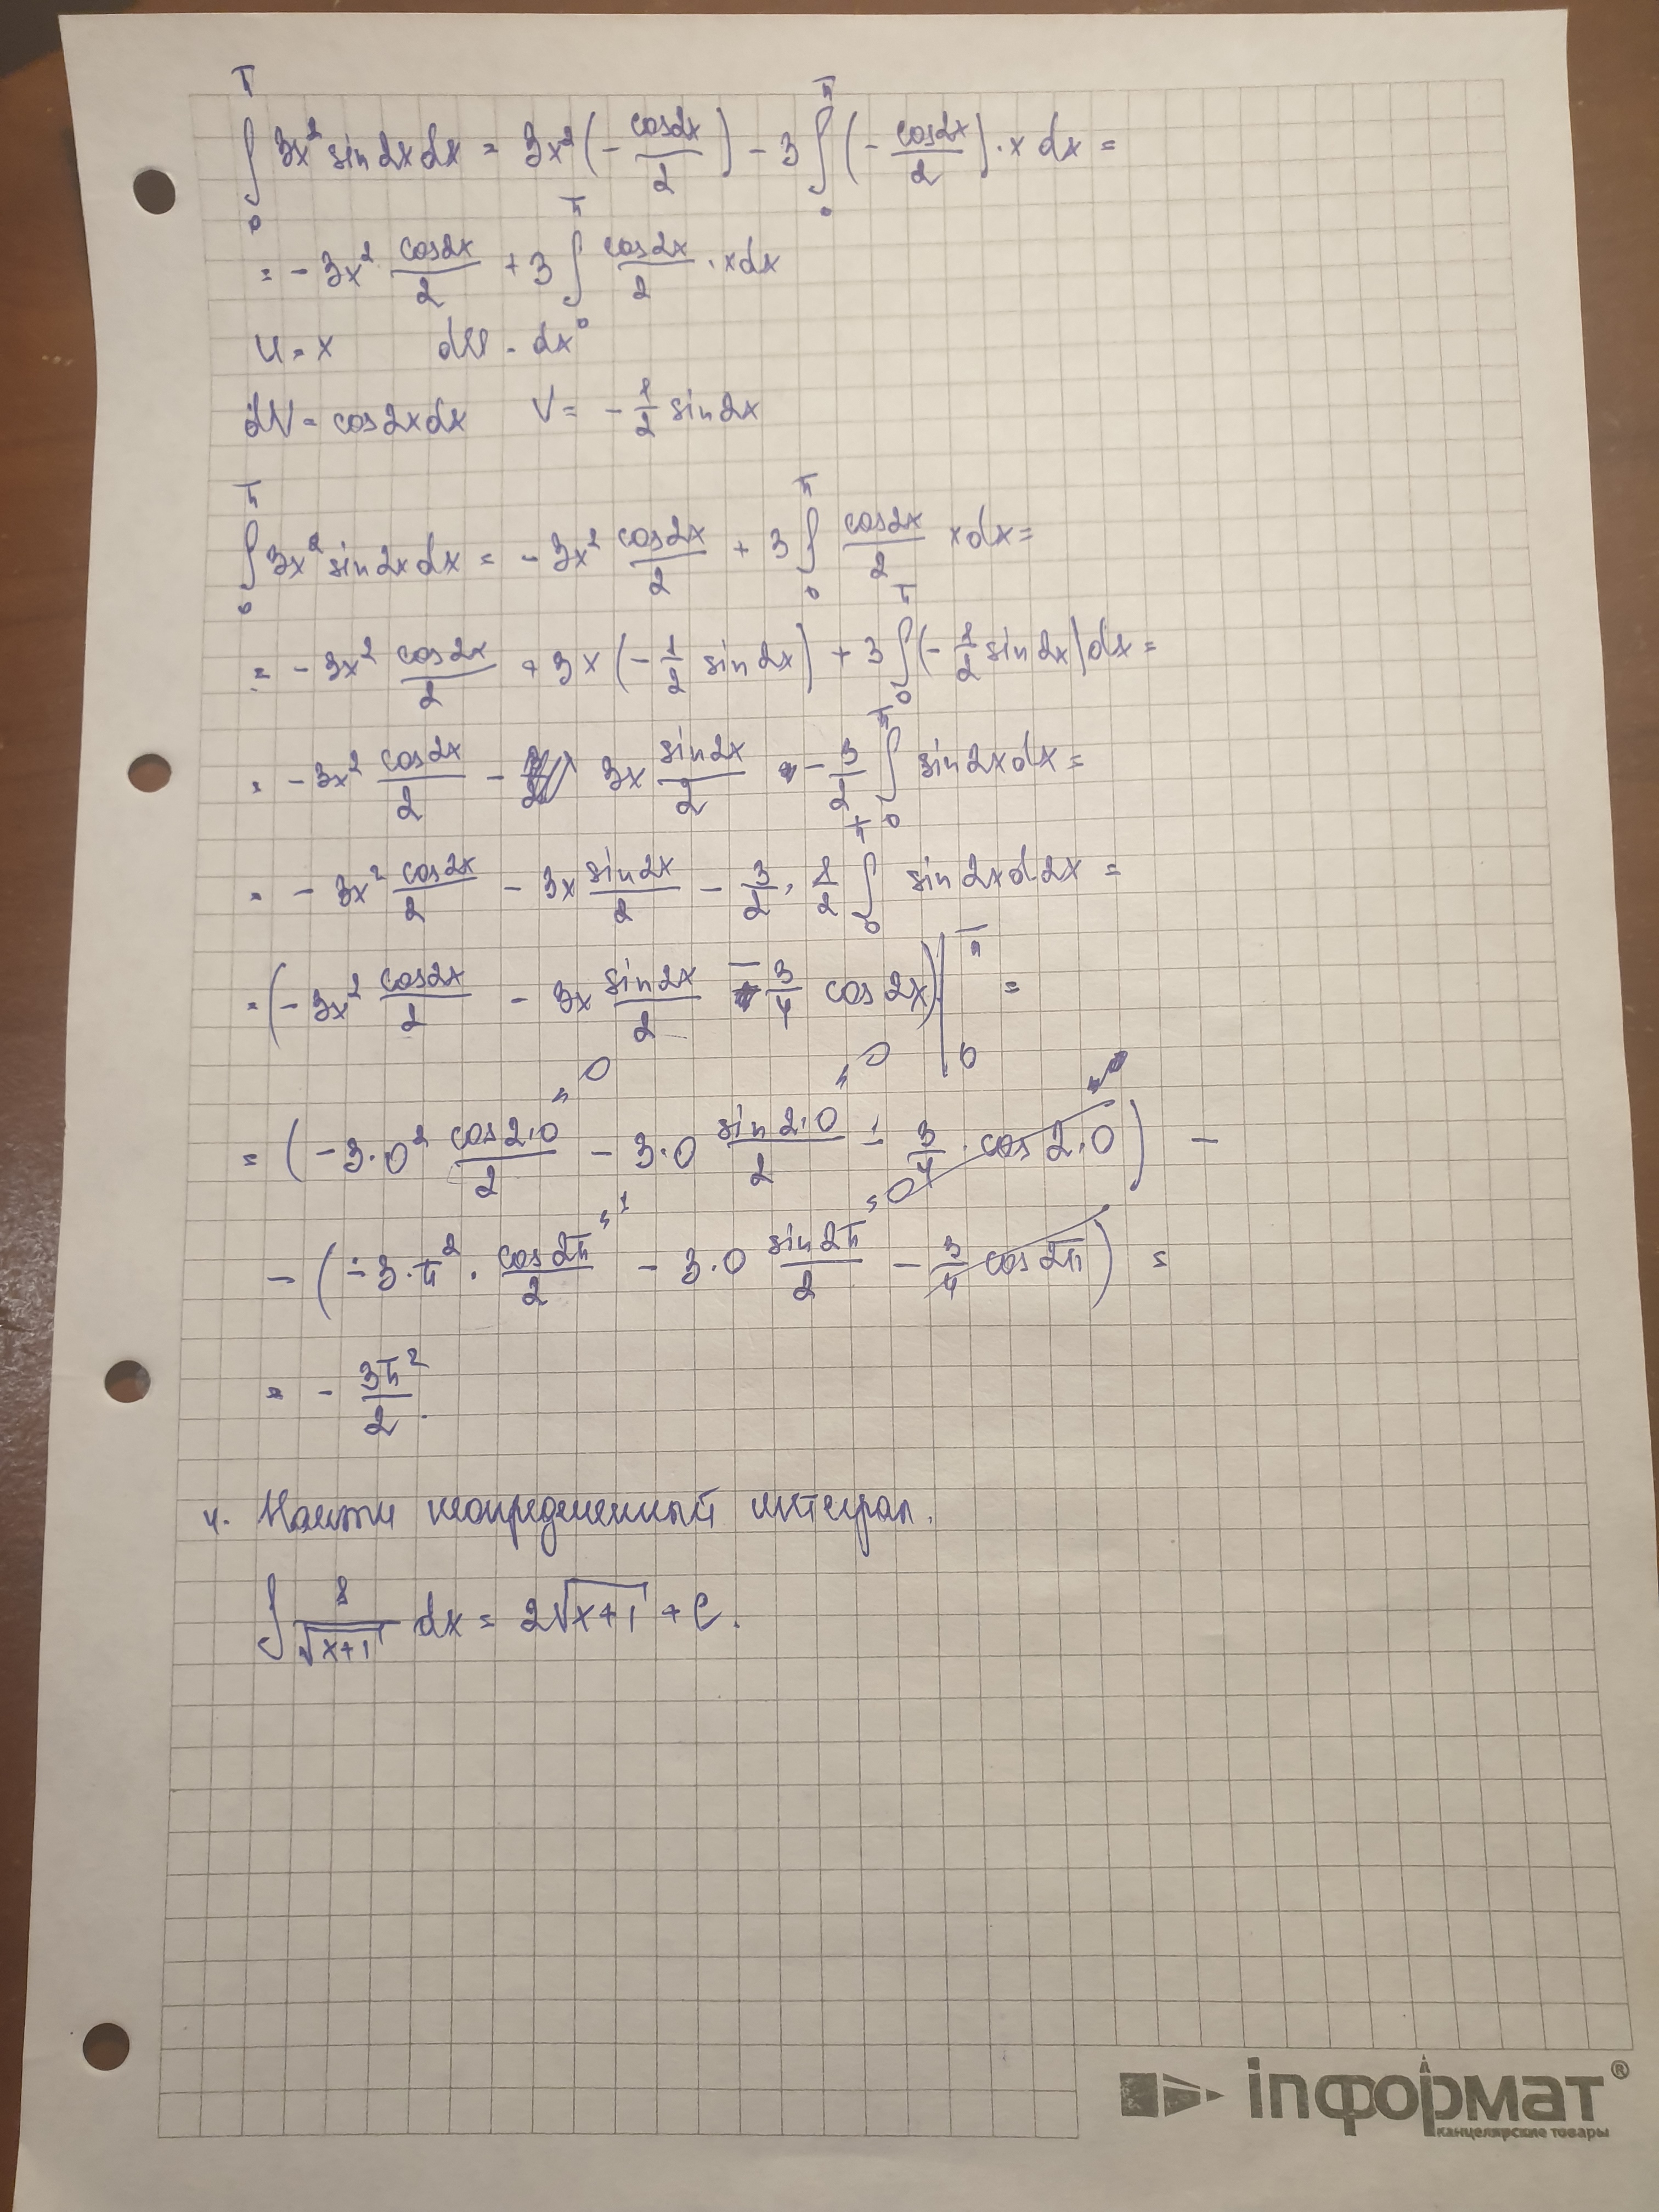 ∫₀^π 3x² sin2x dx = 3x² (- cos2x/2) - 3 ∫₀^π (- cos2x/2) · x dx =
= - 3x² cos2x/2 + 3 ∫₀^π cos2x/2 · x dx
u = x du = dx
dV = cos2x dx V = - 1/2 sin2x
∫₀^π 3x² sin2x dx = - 3x² cos2x/2 + 3 ∫₀^π cos2x/2 x dx =
= - 3x² cos2x/2 + 3x (- 1/2 sin2x) + 3 ∫₀^π (- 1/2 sin2x) dx =
= - 3x² cos2x/2 - 3x sin2x/2 - 3/2 ∫₀^π sin2x dx =
= - 3x² cos2x/2 - 3x sin2x/2 - 3/2 · 1/2 ∫₀^π sin2x d2x =
= (- 3x² cos2x/2 - 3x sin2x/2 - 3/4 cos2x) |₀^π =
= (- 3·0² cos2·0/2 "0 - 3·0 sin2·0/2 "0 - 3/4 · cos2·0) -
- (- 3·π² · cos2π/2 "1 - 3·0 sin2π/2 "0 - 3/4 cos2π) =
= - 3π²/2.
4. Найти неопределенный интеграл.
∫ 1/√(x+1) dx = 2√(x+1) + C.
inформат®
канцелярские товары